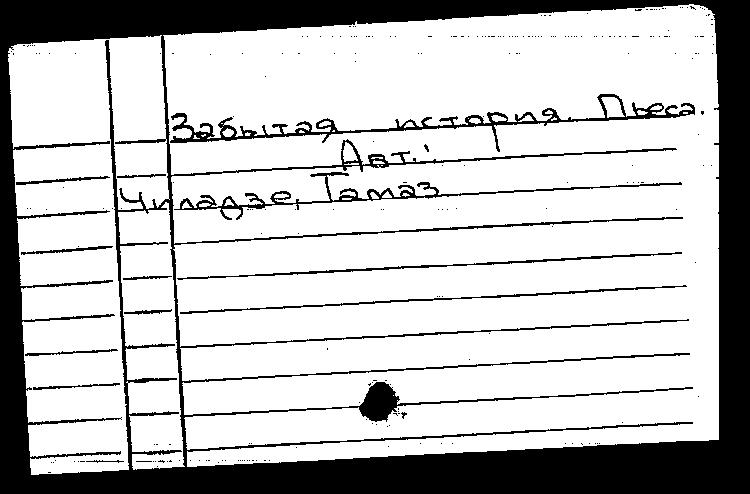 Забытая история. Пьеса.
Авт.:
Чиладзе, Тамаз